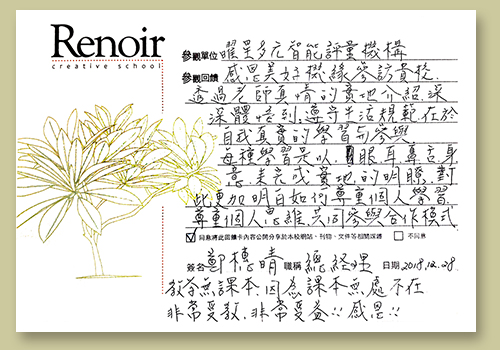 Renoir
creative school
參觀單位 曜星多元智能評量機構
參觀回饋 感恩美好機緣參訪貴校.
透過老師真情的實地介紹,深
深體悟到,遵守生活規範在於
自我真實的學習与參與
每種學習是以 眼耳鼻舌身
意來完成實地的明瞭.對
此更加明白如何尊重個人學習.
尊重個人思維共同參與合作模式
☑ 同意將此回饋卡內容公開分享於本校網站、刊物、文件等相關媒體 ☐ 不同意
簽名 鄭穗晴 職稱 總經理 日期 2018.12.28
教學無課本.因為課本無處不在
非常受教,非常受益!! 感恩!!